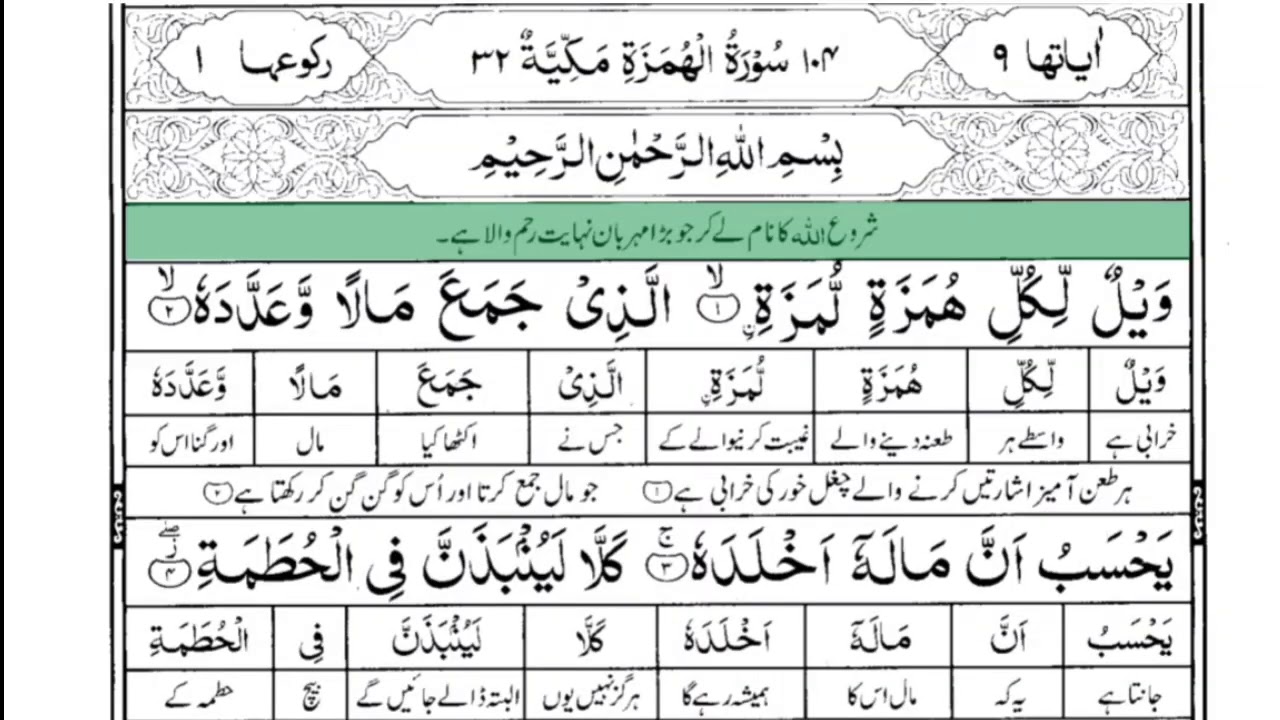 اٰیاتھا ۹ ۱۰۴ سُوْرَۃُ الْهُمَزَةِ مَكِّيَّةٌ ۳۲ رکوعہا ۱
بِسْمِ اللهِ الرَّحْمٰنِ الرَّحِيْمِ
شروع اللہ کا نام لے کر جو بڑا مہربان نہایت رحم والا ہے۔
وَيْلٌ لِّكُلِّ هُمَزَةٍ لُّمَزَةِ ۙ۝۱ الَّذِىْ جَمَعَ مَالًا وَّعَدَّدَهٗ ۙ۝۲
وَيْلٌ لِّكُلِّ هُمَزَةٍ لُّمَزَةِ الَّذِىْ جَمَعَ مَالًا وَّعَدَّدَهٗ
خرابی ہے واسطے ہر طعنہ دینے والے غیبت کرنیوالے کے جس نے اکٹھا کیا مال اور گنا اس کو
ہر طعن آمیز اشارتیں کرنے والے چغل خور کی خرابی ہے ۱ جو مال جمع کرتا اور اُس کو گن گن کر رکھتا ہے ۲
يَحْسَبُ اَنَّ مَالَهٗٓ اَخْلَدَهٗ ۚ۝۳ كَلَّا لَيُنْۢبَذَنَّ فِى الْحُطَمَةِ ۝۴
يَحْسَبُ اَنَّ مَالَهٗٓ اَخْلَدَهٗ كَلَّا لَيُنْۢبَذَنَّ فِى الْحُطَمَةِ
جانتا ہے یہ کہ مال اس کا ہمیشہ رہے گا ہرگز نہیں یوں البتہ ڈالے جائیں گے بیچ حطمہ کے